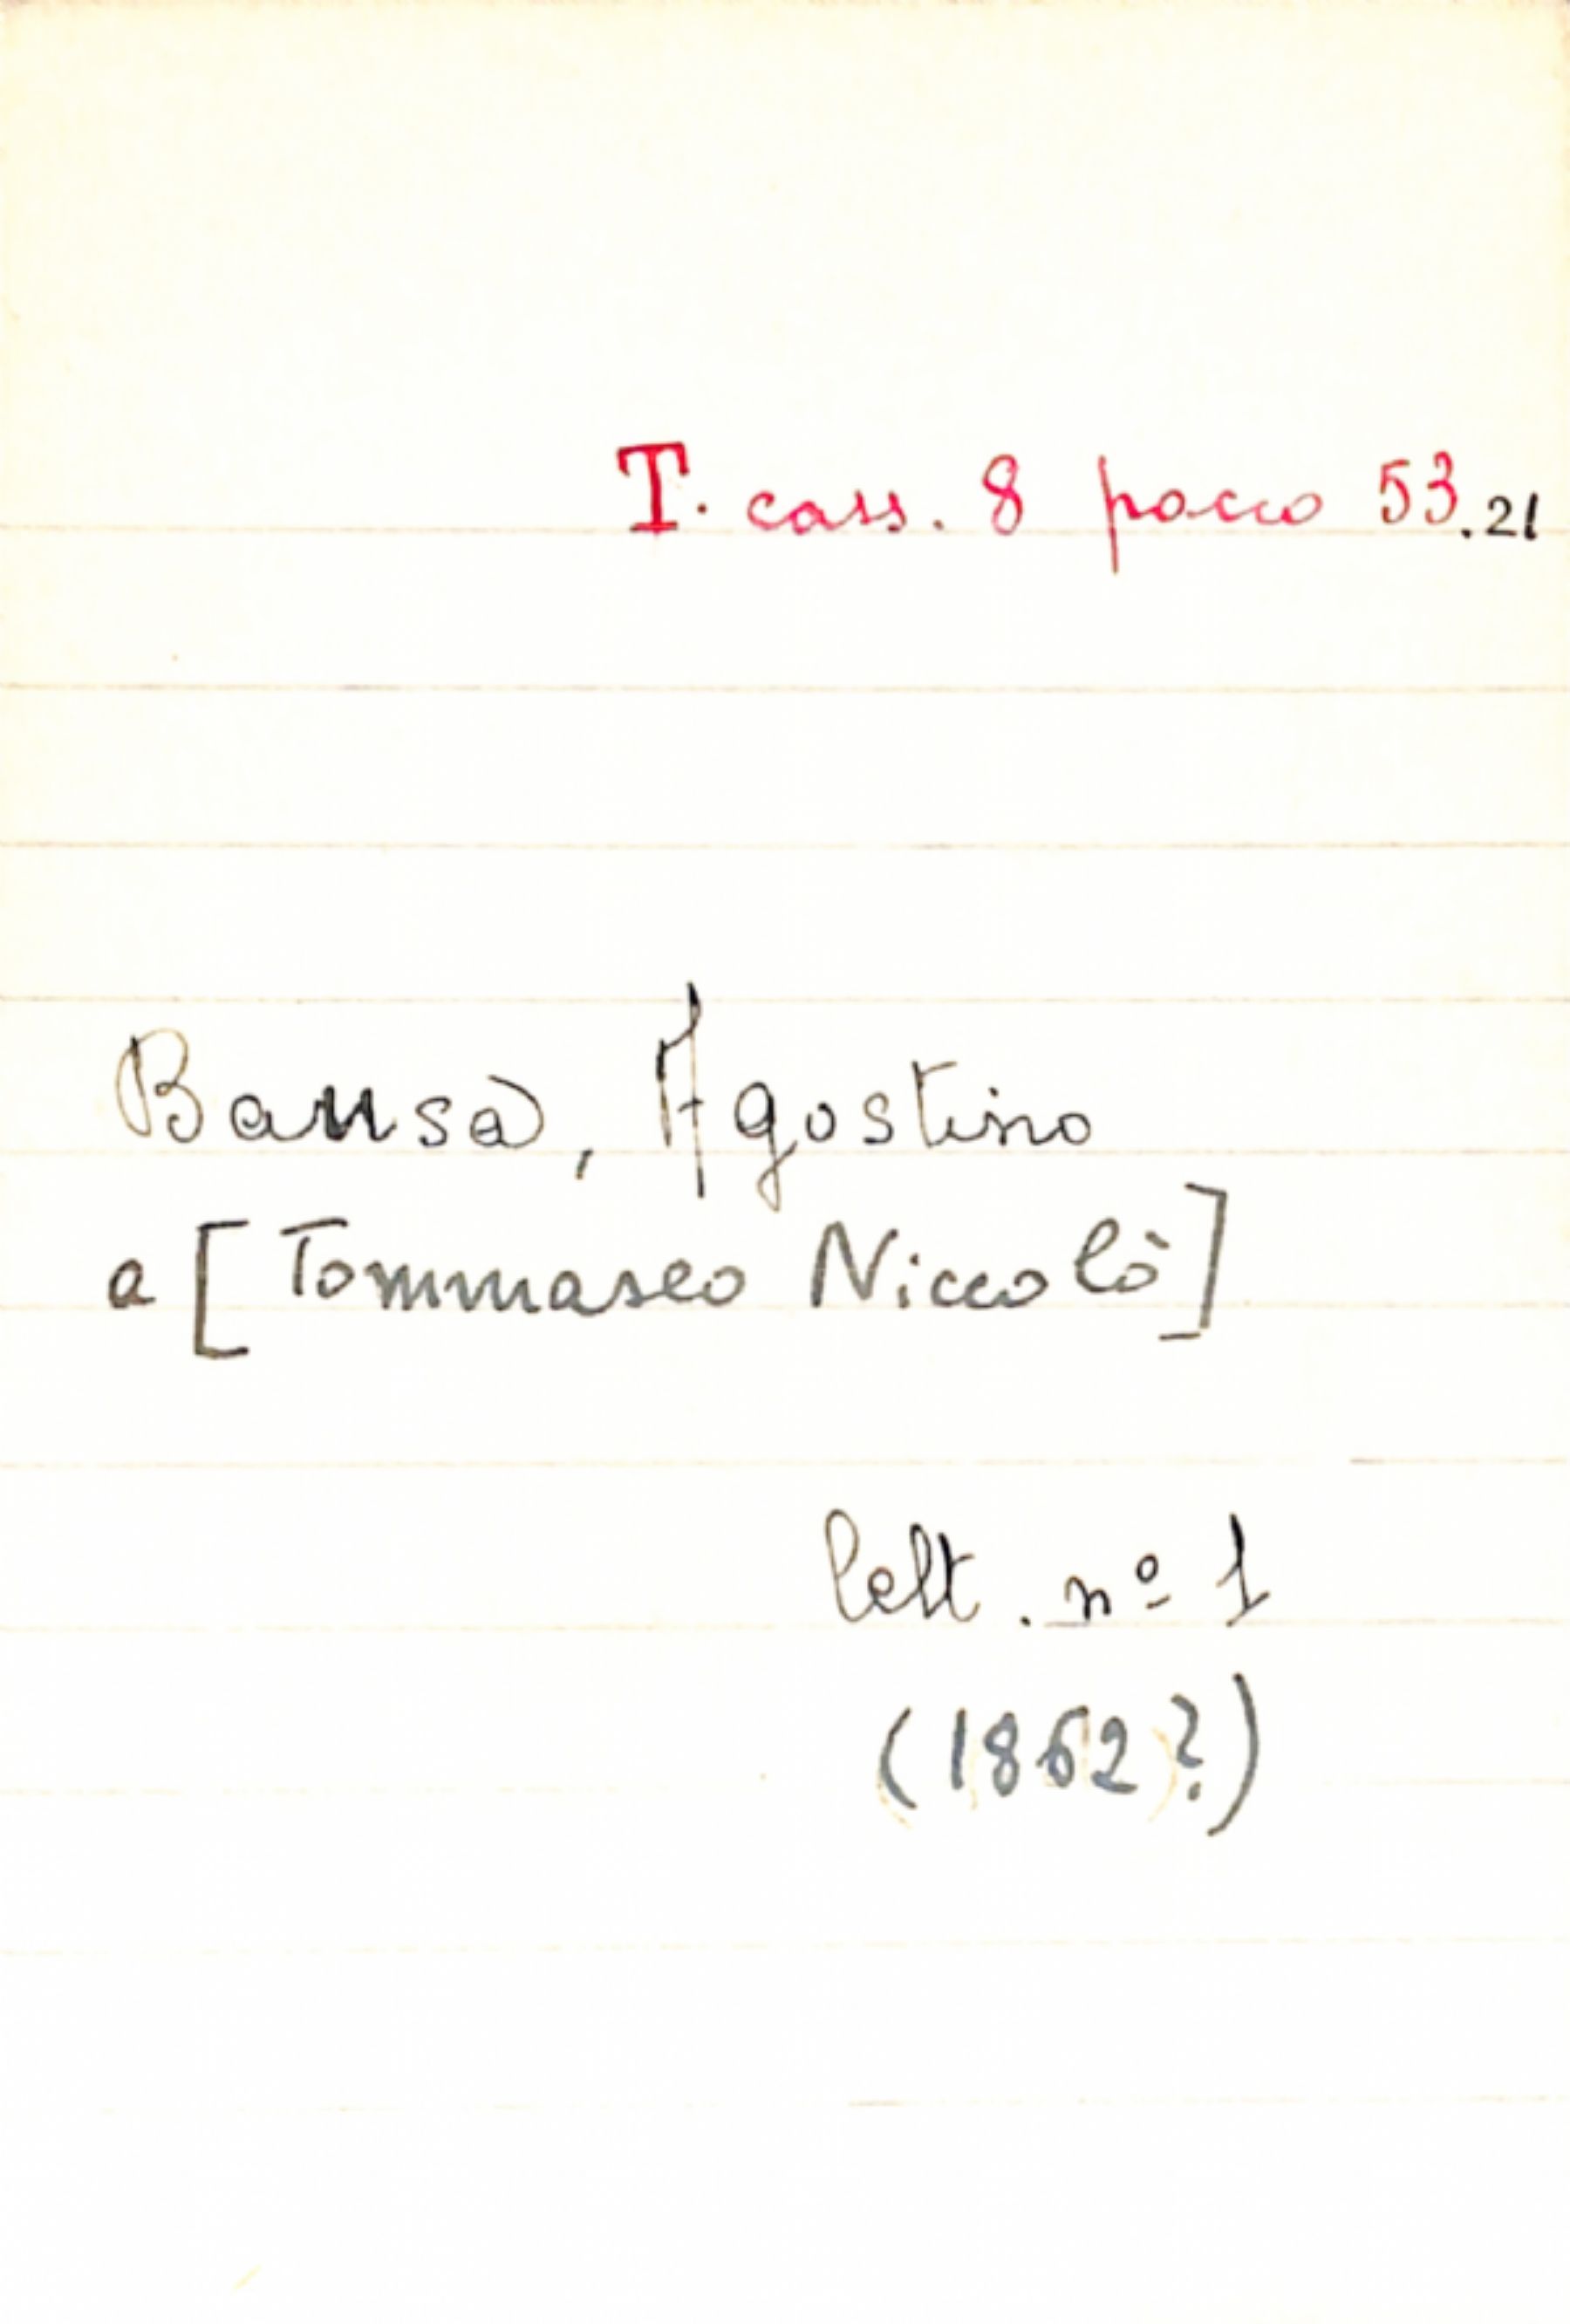 T. cass. 8 pacco 53.21
Bausa, Agostino
a [Tommaseo Niccolò]
lett. nº 1
(1862?)